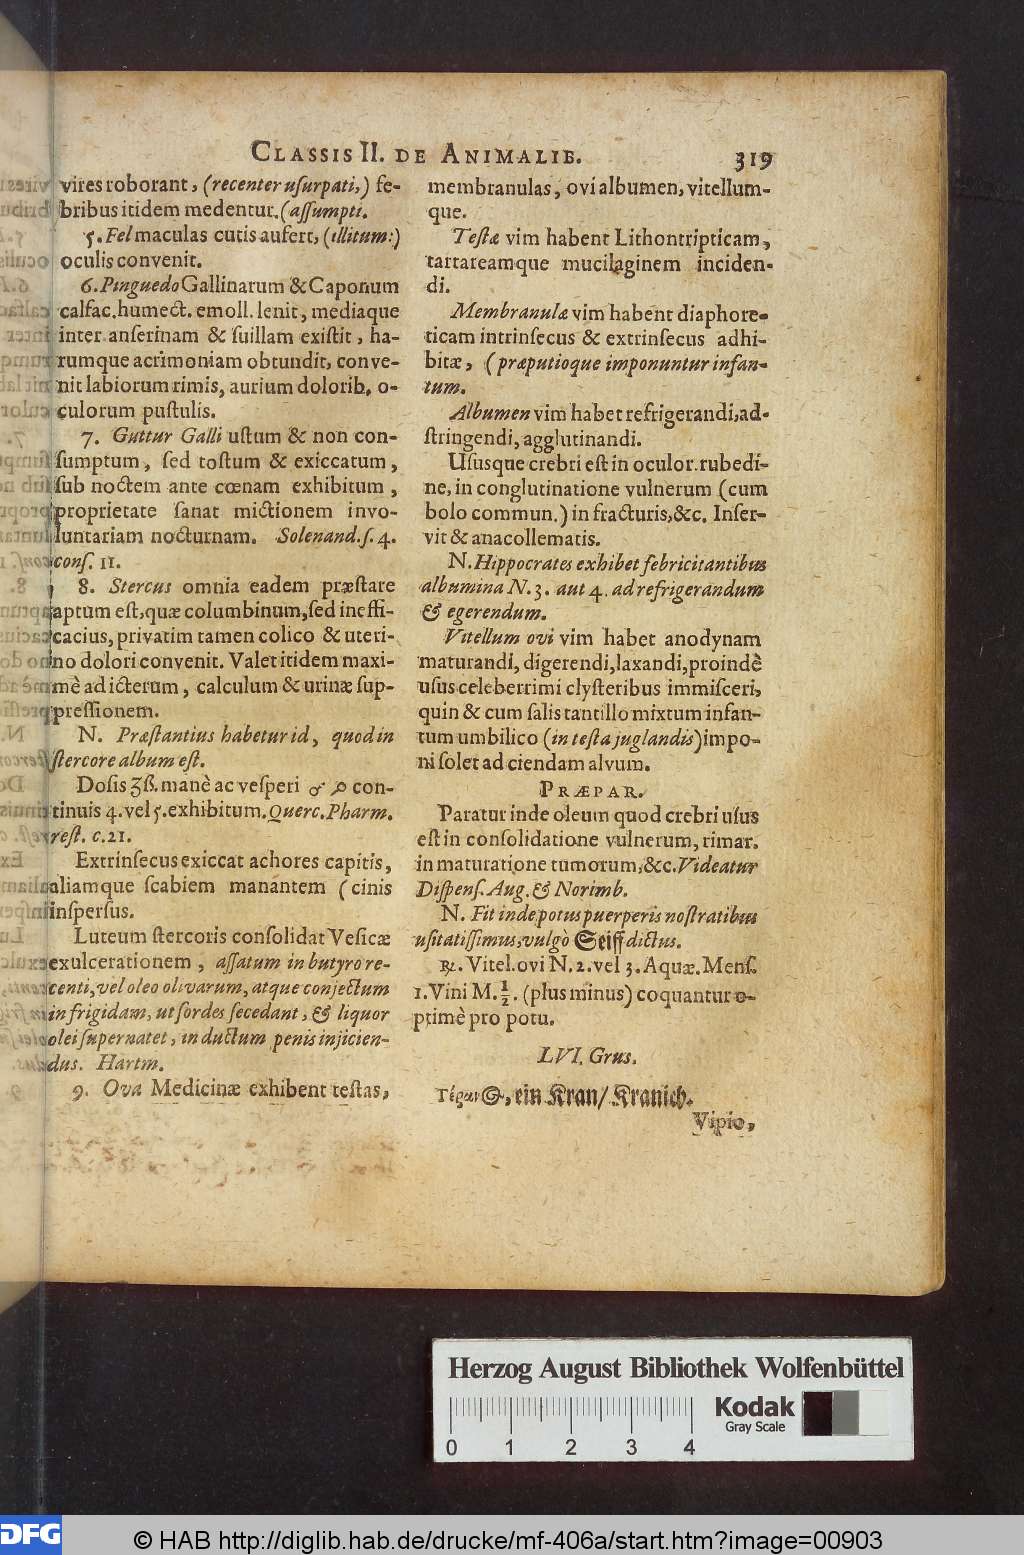 CLASSIS II. DE ANIMALIB. 319
vires roborant, (recenter uſurpati,) fe-
bribus itidem medentur. (aſſumpti.
5. Fel maculas cutis aufert, (illitum:)
oculis convenit.
6. Pinguedo Gallinarum & Caponum
calfac. humect. emoll. lenit, mediaque
inter anſerinam & ſuillam exiſtit, ha-
rumque acrimoniam obtundit, conve-
nit labiorum rimis, aurium dolorib. o-
culorum puſtulis.
7. Guttur Galli uſtum & non con-
ſumptum, ſed toſtum & exiccatum,
ſub noctem ante cœnam exhibitum,
proprietate ſanat mictionem invo-
luntariam nocturnam. Solenand. ſ. 4.
conſ. 11.
8. Stercus omnia eadem præſtare
aptum eſt, quæ columbinum, ſed ineffi-
cacius, privatim tamen colico & uteri-
no dolori convenit. Valet itidem maxi-
mè ad icterum, calculum & urinæ ſup-
preſſionem.
N. Præſtantius habetur id, quod in
ſtercore album eſt.
Doſis ʒß. manè ac veſperi con-
tinuis 4. vel 5. exhibitum. Querc. Pharm.
reſt. c. 21.
Extrinſecus exiccat achores capitis,
aliamque ſcabiem manantem (cinis
inſperſus.
Luteum ſtercoris conſolidat Veſicæ
exulcerationem, aſſatum in butyro re-
centi, vel oleo olivarum, atque conjectum
in frigidam, ut ſordes ſecedant, & liquor
olei ſupernatet, in ductum penis injicien-
dus. Hartm.
9. Ova Medicinæ exhibent teſtas,
membranulas, ovi albumen, vitellum-
que.
Teſtæ vim habent Lithontripticam,
tartareamque mucilaginem inciden-
di.
Membranulæ vim habent diaphore-
ticam intrinſecus & extrinſecus adhi-
bitæ, (præputioque imponuntur infan-
tum.
Albumen vim habet refrigerandi, ad-
ſtringendi, agglutinandi.
Uſusque crebri eſt in oculor. rubedi-
ne, in conglutinatione vulnerum (cum
bolo commun.) in fracturis, &c. Inſer-
vit & anacollematis.
N. Hippocrates exhibet febricitantibus
albumina N. 3. aut 4. ad refrigerandum
& egerendum.
Vitellum ovi vim habet anodynam
maturandi, digerendi, laxandi, proindè
uſus celeberrimi clyſteribus immiſceri,
quin & cum ſalis tantillo mixtum infan-
tum umbilico (in teſta juglandis) impo-
ni ſolet ad ciendam alvum.
PRÆPAR.
Paratur inde oleum quod crebri uſus
eſt in conſolidatione vulnerum, rimar.
in maturatione tumorum, &c. Videatur
Diſpenſ. Aug. & Norimb.
N. Fit inde potus puerperis noſtratibus
uſitatiſſimus, vulgò Seiff dictus.
℞. Vitel. ovi N. 2. vel 3. Aquæ. Menſ.
1. Vini M. ½. (plus minus) coquantur o-
ptimè pro potu.
LVI. Grus.
ein Kran/ Kranich.
Vipio,
Herzog August Bibliothek Wolfenbüttel
0 1 2 3 4
Kodak
Gray Scale
DFG
© HAB http://diglib.hab.de/drucke/mf-406a/start.htm?image=00903